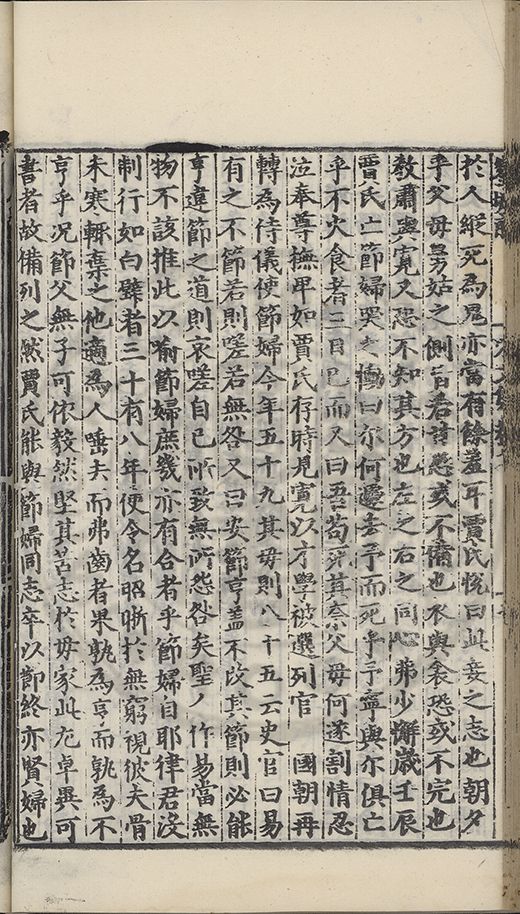 於人縱死為鬼亦當有餘羞耳賈氏悅曰此妾之志也朝夕
乎父母舅姑之側旨若甘恐或不備也衣與衾恐或不完也
敎肅與寬又恐不知其方也左之右之同心弗少懈歲壬辰
賈氏亡節婦哭之慟曰尒何遽去予而死乎予寧與尒俱亡
乎不火食者三日已而又曰吾苟死其柰父母何遂割情忍
泣奉尊撫卑如賈氏存時見寬以才學被選列官 國朝再
轉為侍儀使節婦今年五十九其母則八十五云史官曰易
有之不節若則嗟若無咎又曰安節亨盖不改其節則必能
亨違節之道則哀嗟自己所致無所怨咎矣聖人作易當無
物不該推此以喻節婦庶幾亦有合者乎節婦自耶律君沒
制行如白璧者三十有八年使令名昭晣於無窮視彼夫骨
未寒輒棄之他適為人唾夫而弗齒者果孰為亨而孰為不
亨乎况節父無子可依毅然堅其苦志於毋家此尤卓異可
書者故備列之然賈氏能與節婦同志卒以節終亦賢婦也